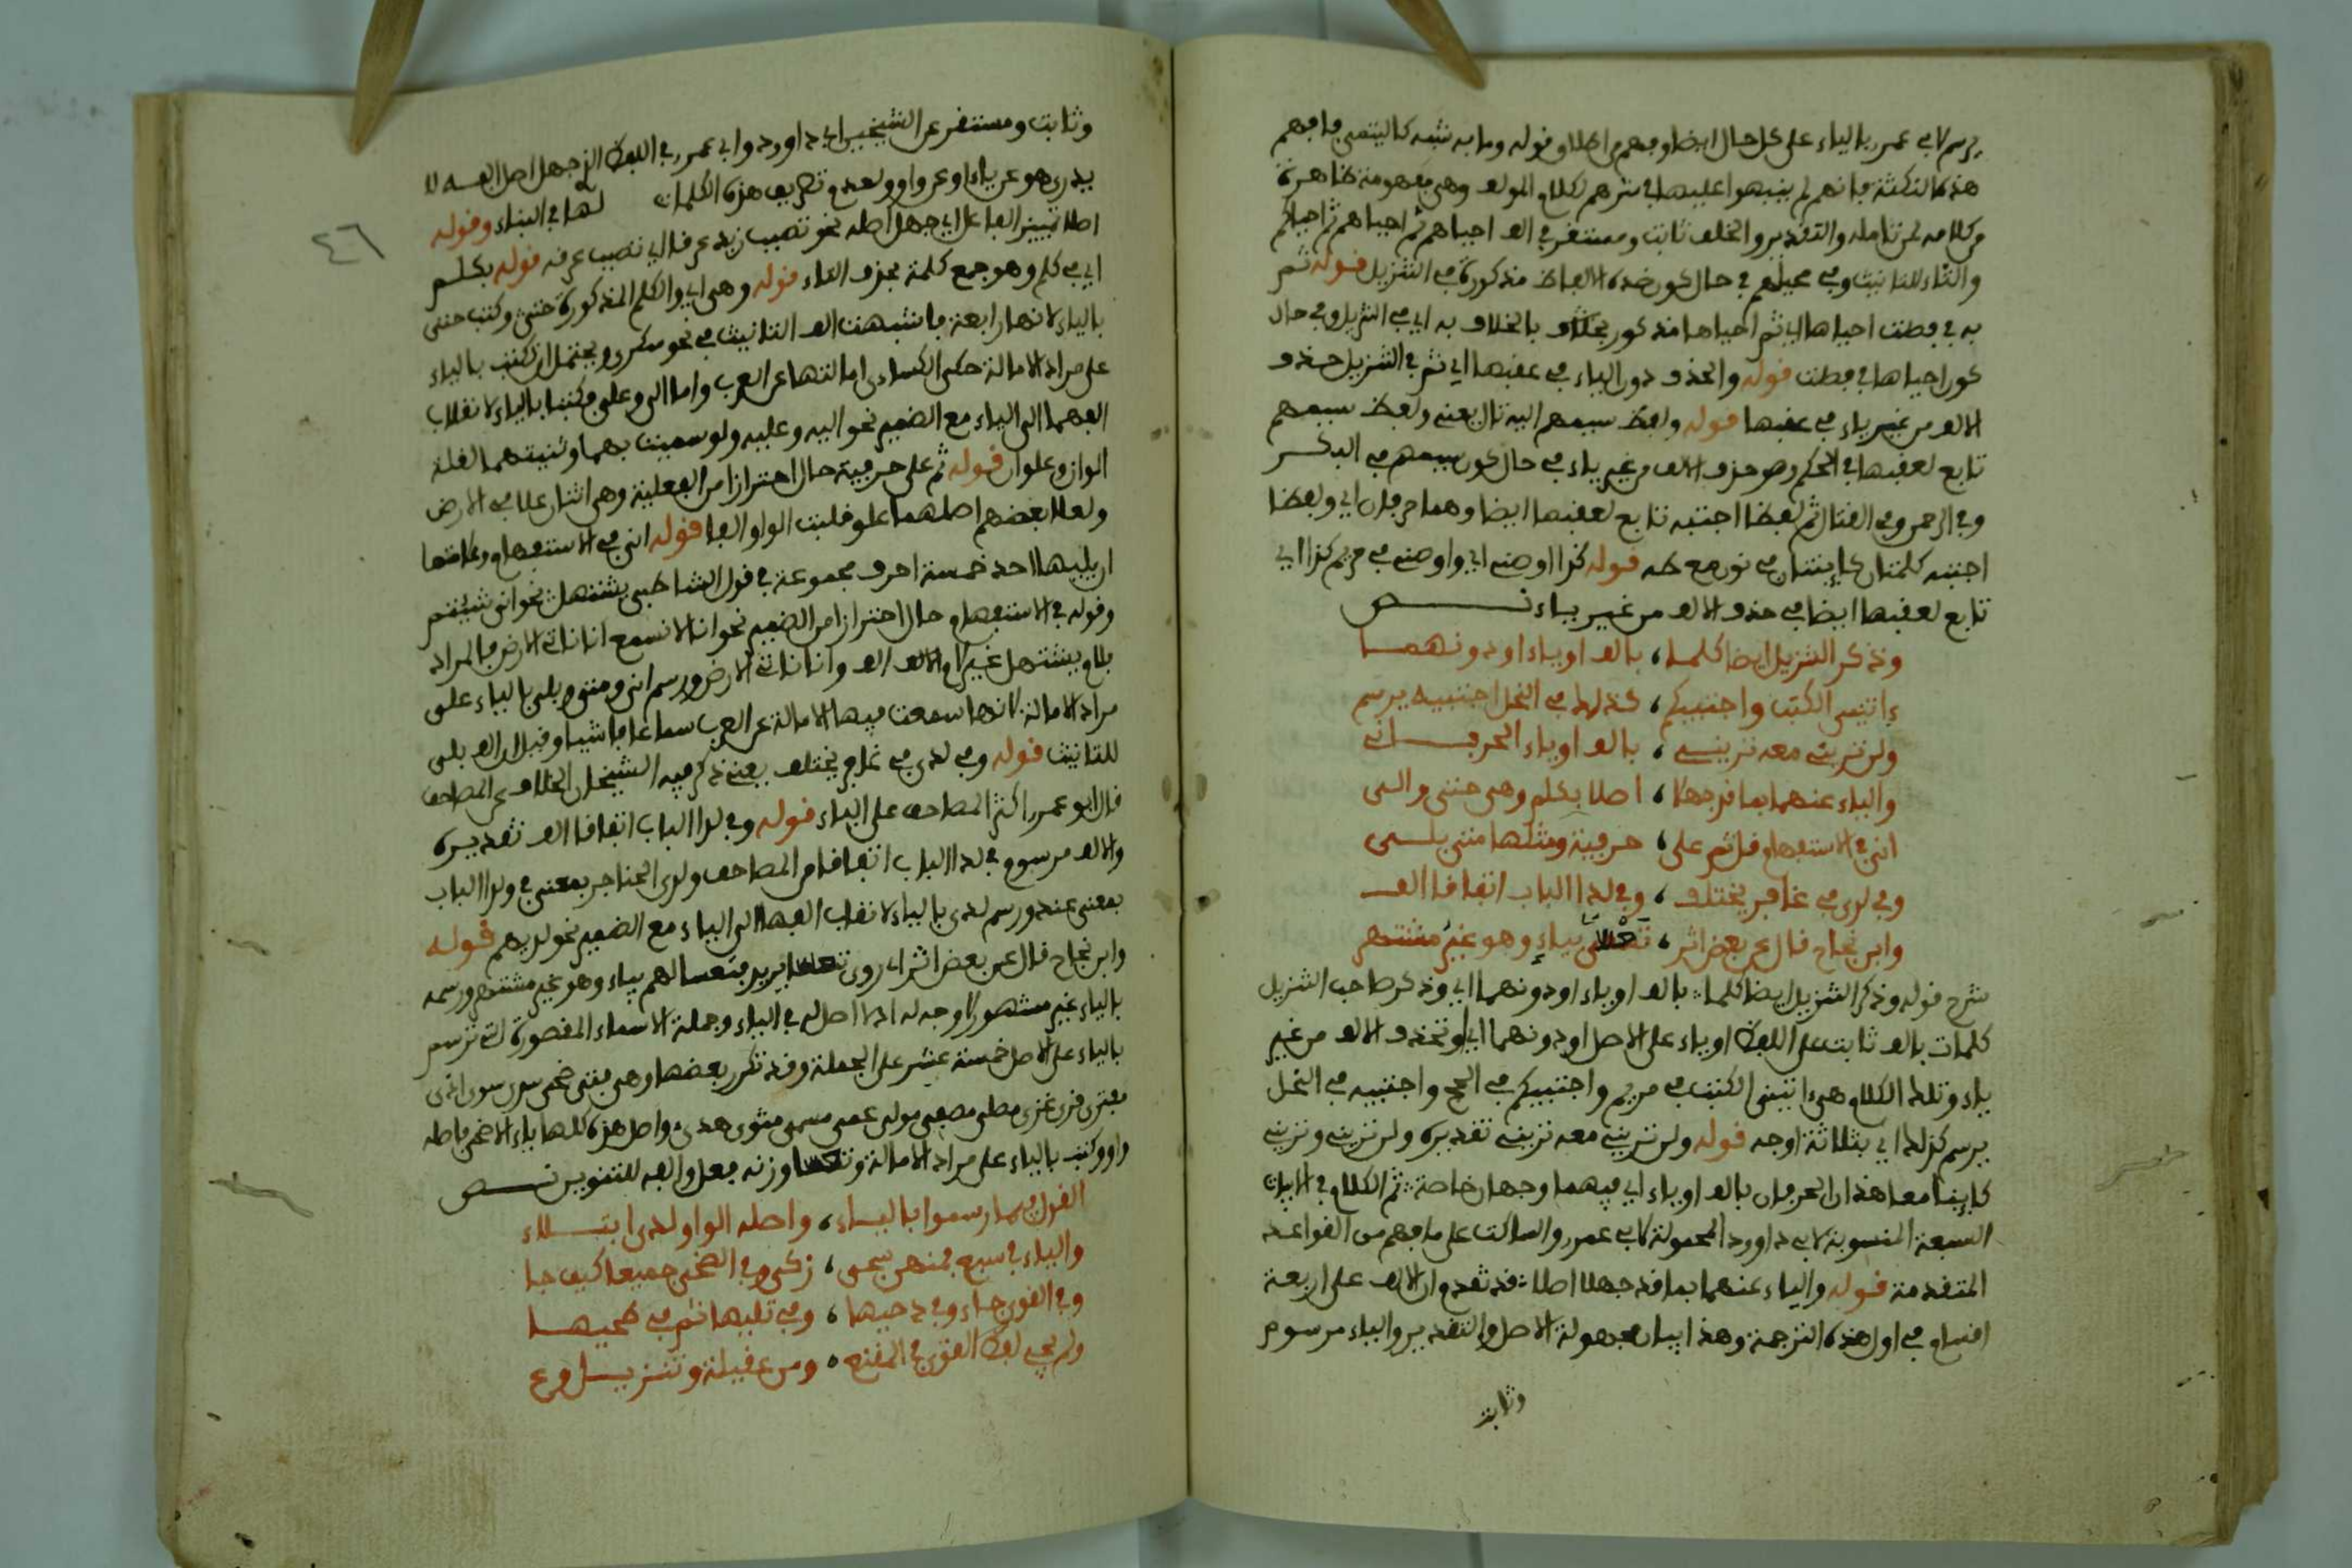 يرسم لابي عمرو بالياء على كل حال ايضا وبهم من اطلاق قوله وما به شبه كاليتمى بافهم
هذه النكتة فانهم لم ينبهوا عليها في شرحهم لكلام المؤلف وهي مفهومة ظاهرة
من كلامه لمن تامله والتقدير والخلف ثابت ومستقر في الف احياهم ثم احياهم ثم احياكم
والتاء للتانيث وفي محيلهم في حال كون هذه الالفاظ مذكورة في التنزيل قوله ثم
به في فصلت احياها اي ثم احياها مذكور بخلاف بالخلاف به اي في التنزيل وفي حال
كون احياها في فصلت قوله والحذف دون الياء في عقبها اي ثم في التنزيل حذف
الالف من غير ياء في عقبها قوله ولفظ سيمهم اليه تال يعني ولفظ سيمهم
تابع لعقبها في الحكم وهو حذف الالف من غير ياء في حال كون سيمهم في البكر
وفي الرحمن وفي القتال ثم لفظ اجتبيه تابع لعقبها ايضا وهما حرفان اي ولفظا
اجتبيه كلمتان كاينتان في نون مع طه قوله كذا اوصني اي واوصني في مريم كذا اي
تابع لعقبها ايضا في حذف الالف من غير ياء نص
وذكر التنزيل ايضا كلما ، بالف او ياء او دونهما
ءاتيني الكتب واجتبيكم ، كذلك في النحل اجتبيه يرسم
ولن تريني معه تريني ، بالف او ياء الحرفان
والياء عنهما بما قد جهلا ، اصلا بكلم وهي حتى والى
انى في الاستفهام قل ثم على ، حرفية ومثلها متى بلى
وفي لدى في غافر يختلف ، وفي لدا الباب اتفاقا الف
وابن نجاح قال عن بعض اثر ، تعسى بياء وهو غير مشتهر
شرح قوله وذكر التنزيل ايضا كلما : بالف او ياء او دونهما اي وذكر صاحب التنزيل
كلمات بالف ثابت على اللفظ او ياء على الاصل او دونهما اي او تحذف الالف من غير
ياء وتلك الكلام هي ءاتيني الكتب في مريم واجتبيكم في الحج واجتبيه في النحل
يرسم كذلك اي بثلاثة اوجه قوله ولن تريني معه تريني تقديره ولن تريني وتريني
كاينا معا هذان الحرفان بالف او ياء اي فيهما وجهان خاصة ثم الكلام في الابيات
السبعة المنسوبة لابي داوود المحمولة لابي عمرو والساكت على ما فهم من القواعد
المتقدمة قوله والياء عنهما بما قد جهلا اصلا : قد تقدم ان الالف على اربعة
اقسام في اول هذه الترجمة وهذا بيان مجهولة الاصل والتقدير والياء مرسوم
وثابت
وثابت ومستقر عن الشيخين ابي داوود وابي عمرو في اللفظ الذي جهل اصل الفه لا
يدرى هو عن ياء او عن واو ولعدم تصريف هذه الكلمات لها في البناء وقوله
اصلا تمييز الفاعل اي جهل اصله نحو تصبب زيد عرقا اي تصبب عرقه قوله بكلم
اي في كلم وهو جمع كلمة بحذف التاء قوله وهي اي والكلم المذكورة حتى وكتب حتى
بالياء لانها رابعة فاشبهت الف التانيث في نحو سكرى ويحتمل ان كتبت بالياء
على مراد الامالة حكى الكسائي امالتها عن العرب واما الى وعلى فكتبا بالياء لانقلاب
الفهما الى الياء مع الضمير نحو اليه وعليه ولو سميت بهما وثنيتهما لقلت
الوان وعلوان قوله ثم على حرفية حال احترازا من الفعلية وهي اثنان علا في الارض
ولعلا بعضهم اصلهما علو قلبت الواو الفا قوله انى في الاستفهام وعلامتها
ان يليها احد خمسة احرف مجموعة في قول الشاطبي بشتهل نحو انى شيتم
وقوله في الاستفهام حال احترازا من الضمير نحو انا لا نسمع انا ناتي الارض فالمراد
للتانيث قوله وفي لدى في غافر يختلف يعني ذكر فيه الشيخان الخلاف عن المصاحف
قال ابو عمرو اكثر المصاحف على الياء قوله وفي لدا الباب اتفاقا الف تقديره
والالف مرسوم في لدا الباب اتفاقا من المصاحف ولدى الحناجر بمعنى في ولدا الباب
بمعنى عند ورسم لدى بالياء لانقلاب الفها الى الياء مع الضمير نحو لديهم قوله
وابن نجاح قال عن بعض اثر اي روى تعسا يريد فتعسا لهم بياء وهو غير مشتهر ورسمه
بالياء غير مشهور لا وجه له اذ لا اصل له في الياء وجملة الاسماء المقصورة التي ترسم
بالياء على الاصل خمسة عشر على الجملة وقد تكرر بعضها وهي فتى ضحى سدى سوى اذى
مفترى قرى غزى مصلى مصفى مولى عمى مسمى مثوى هدى واصل هذه كلها ياء الا ضحى فاصله
واو وكتب بالياء على مراد الامالة وتعسا وزنه فعل والفه للتنوين نص
القول فيما رسموا بالياء ، واصله الواو لدى ابتلاء
والياء في سبع فمنهن سجى ، زكى وفي الضحى جميعا كيف جا
وفي القوى جاء وفي دحيها ، وفي تليها ثم في طحيها
ولم يجي لفظ القوى في المقنع ، ومن عقيلة وتنزيل وعي
٤٦